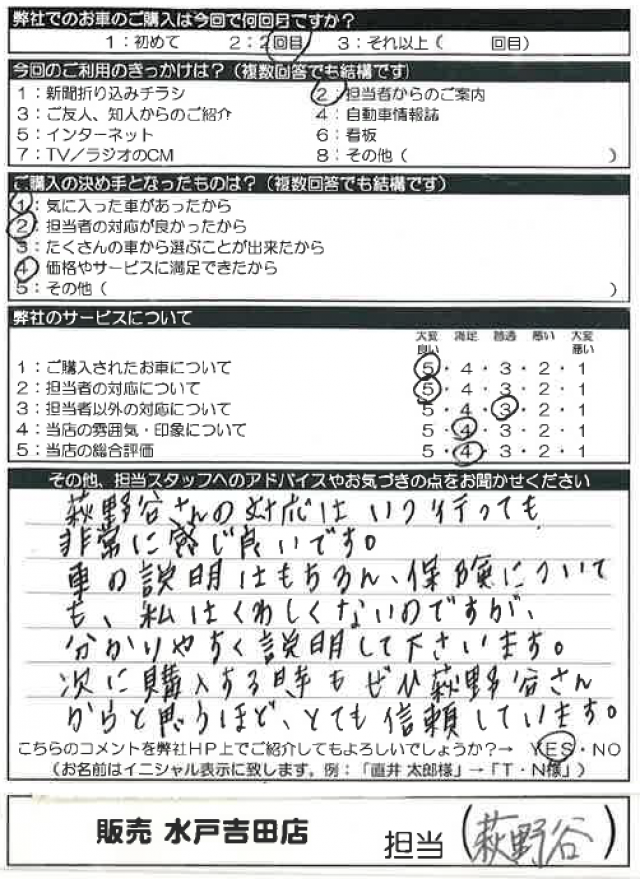 弊社でのお車のご購入は今回で何回目ですか？
1：初めて 2：2回目 3：それ以上（ 回目）
今回のご利用のきっかけは？（複数回答でも結構です）
1：新聞折り込みチラシ 2：担当者からのご案内
3：ご友人、知人からのご紹介 4：自動車情報誌
5：インターネット 6：看板
7：TV／ラジオのCM 8：その他（ ）
ご購入の決め手となったものは？（複数回答でも結構です）
1：気に入った車があったから
2：担当者の対応が良かったから
3：たくさんの車から選ぶことが出来たから
4：価格やサービスに満足できたから
5：その他（ ）
弊社のサービスについて
大変良い 満足 普通 悪い 大変悪い
1：ご購入されたお車について 5・4・3・2・1
2：担当者の対応について 5・4・3・2・1
3：担当者以外の対応について 5・4・3・2・1
4：当店の雰囲気・印象について 5・4・3・2・1
5：当店の総合評価 5・4・3・2・1
その他、担当スタッフへのアドバイスやお気づきの点をお聞かせください
萩野谷さんの対応はいつ行っても
非常に感じ良いです。
車の説明はもちろん、保険について
も、私はくわしくないのですが、
分かりやすく説明して下さいます。
次に購入する時もぜひ萩野谷さん
からと思うほど、とても信頼しています。
こちらのコメントを弊社HP上でご紹介してもよろしいでしょうか？→ YES・NO
（お名前はイニシャル表示に致します。例：「直井 太郎様」→「T・N様」）
販売 水戸吉田店 担当（萩野谷）